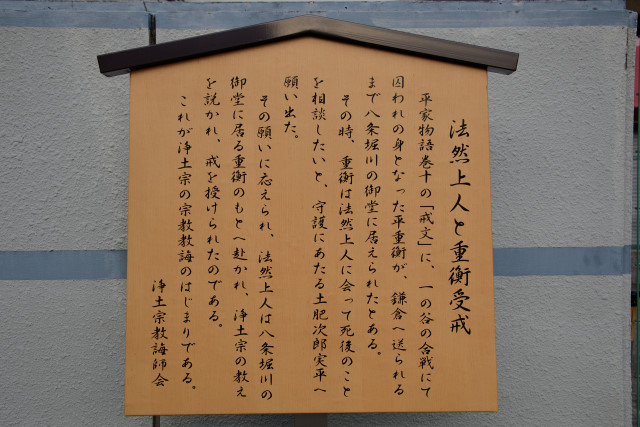 法然上人と重衡受戒
平家物語巻十の「戒文」に、一の谷の合戦にて
囚われの身となった平重衡が、鎌倉へ送られる
まで八条堀川の御堂に居えられたとある。
その時、重衡は法然上人に会って死後のこと
を相談したいと、守護にあたる土肥次郎実平へ
願い出た。
その願いに応えられ、法然上人は八条堀川の
御堂に居る重衡のもとへ赴かれ、浄土宗の教え
を説かれ、戒を授けられたのである。
これが浄土宗の宗教教誨のはじまりである。
浄土宗教誨師会